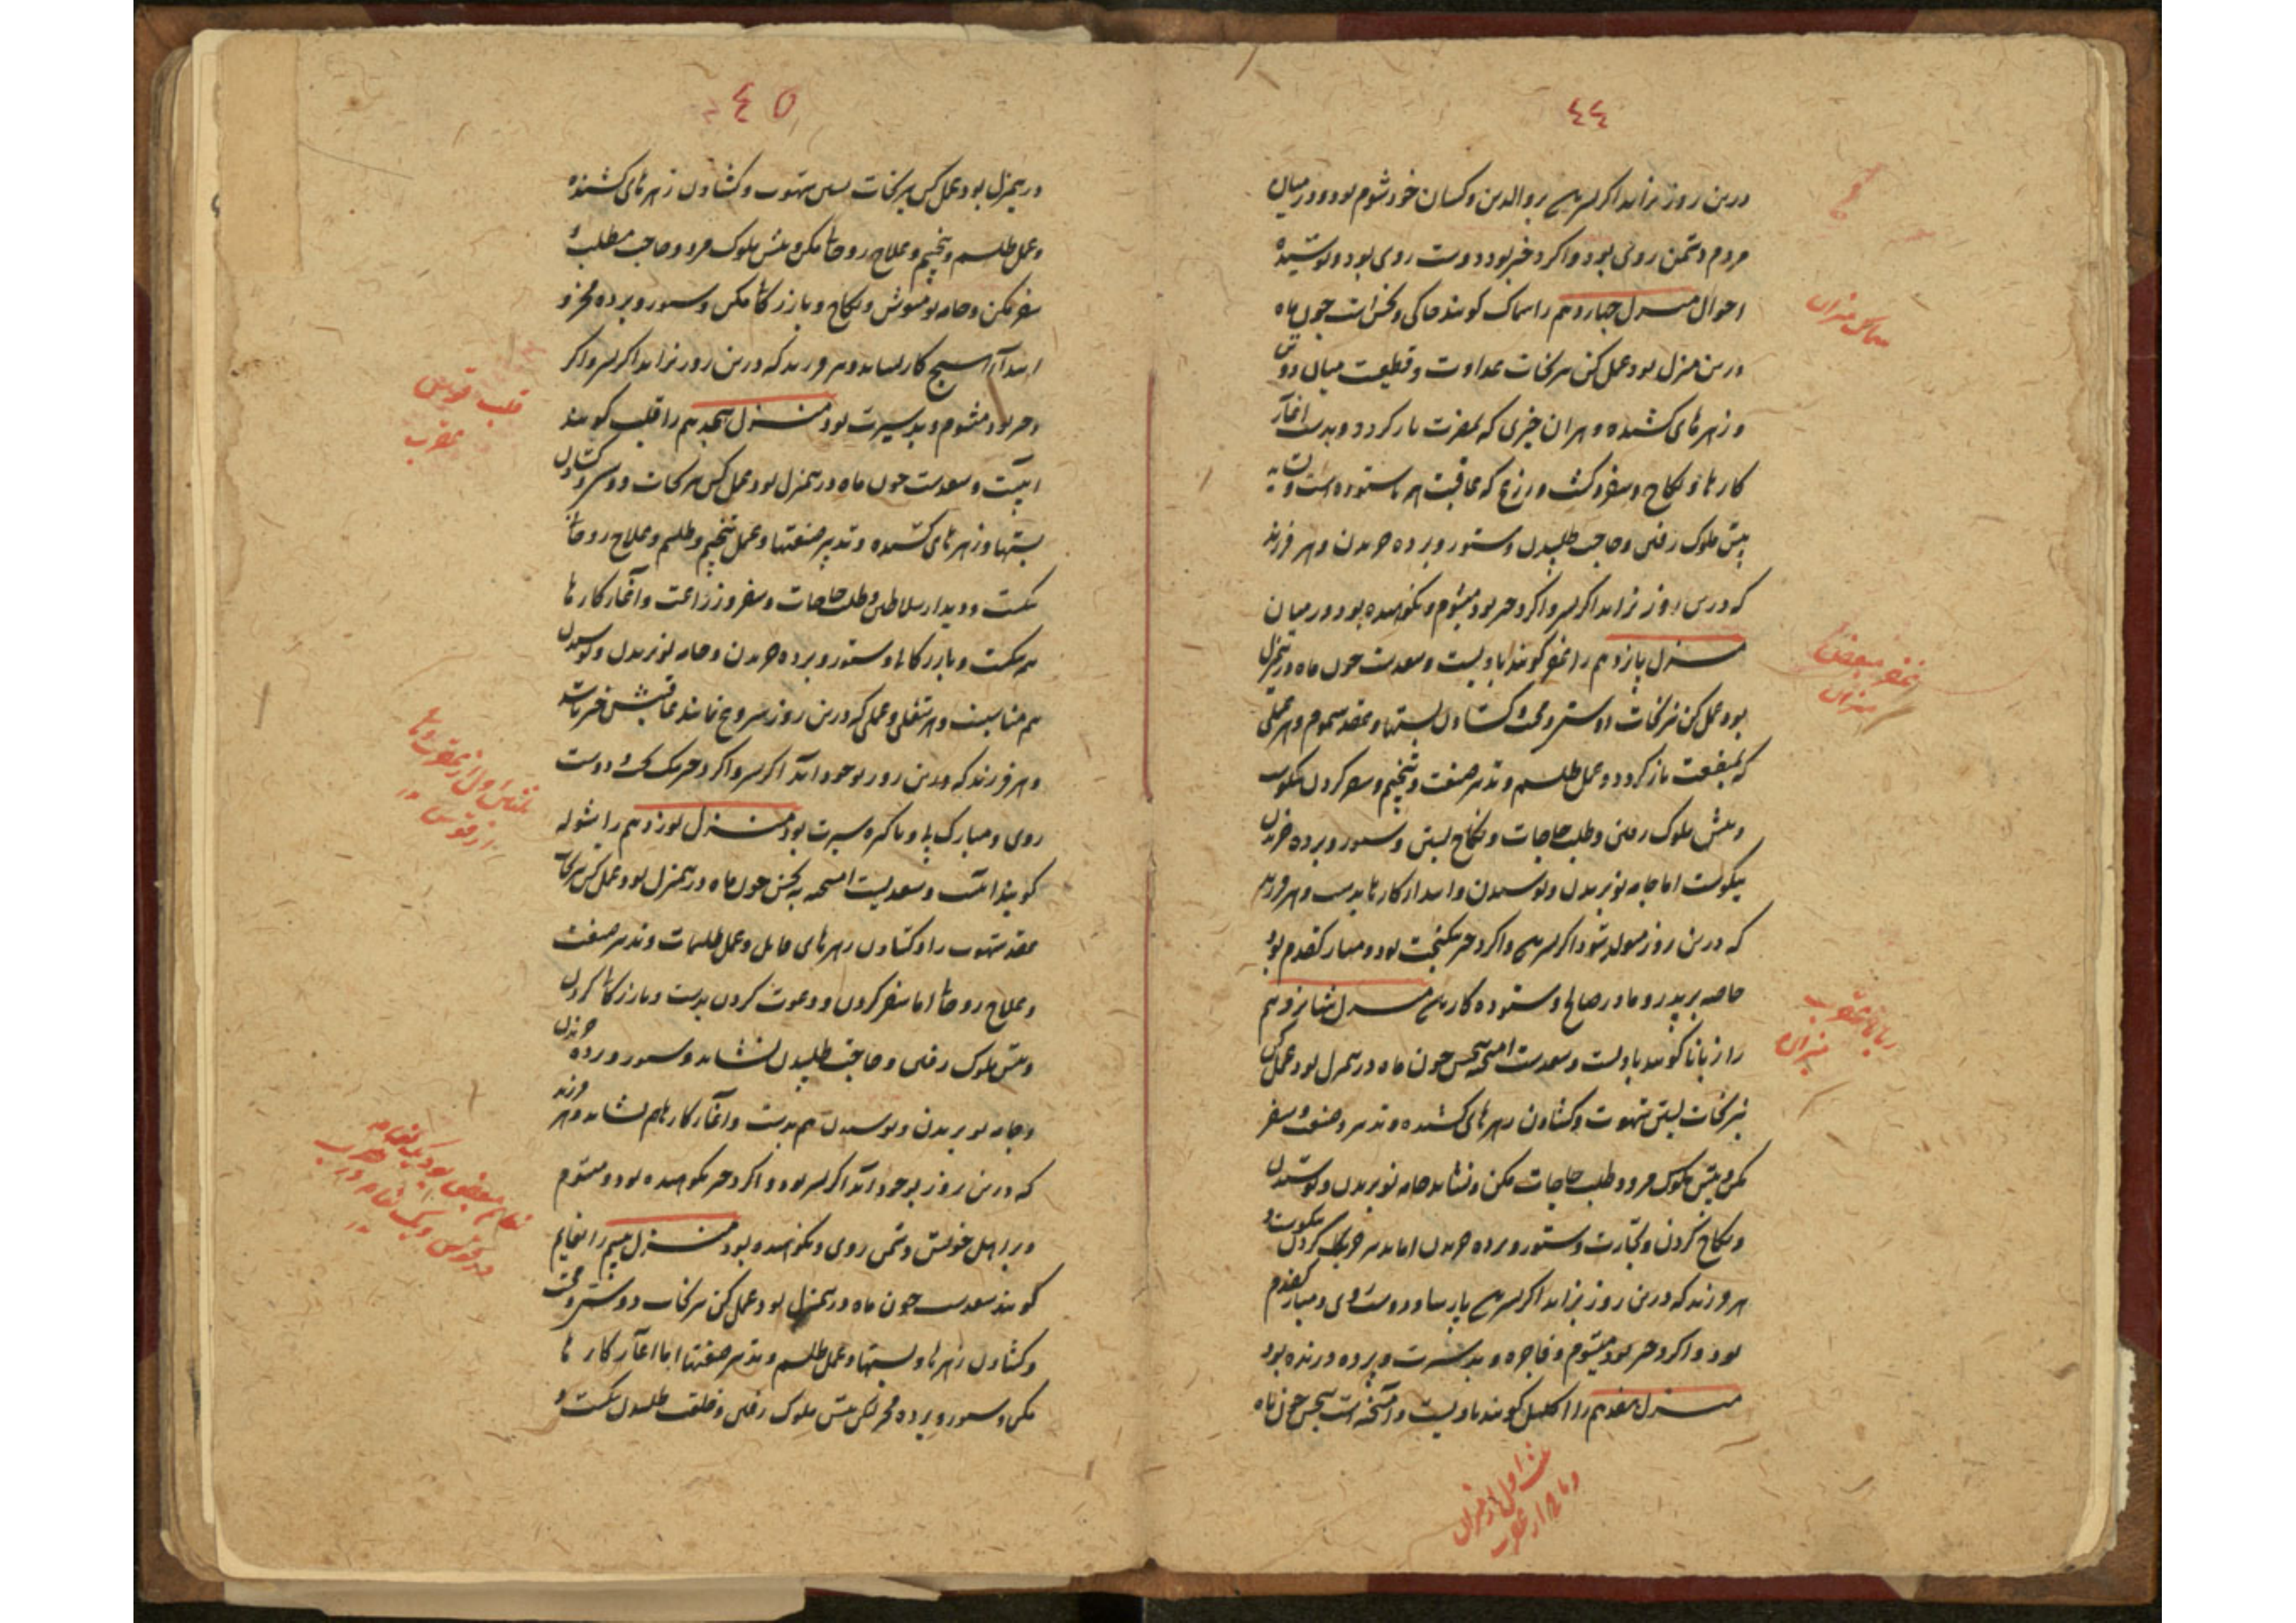 ٤٤
درین روز بزاید اگر پسر بر والدین و کسان خود شوم بود و در میان
مردم دشمن روی بود و اگر دختر بود دوست روی بود و پوشیده
احوال منزل چهاردهم را سماک گویند خاکی و نحس است چون ماه
درین منزل بود عمل کن نیرنجات عداوت و قطیعت میان دو
و زهرهای کشنده و هر آن چیزی که بمضرت باز گردد و بدست آغاز
کارها و نکاح و سفر و کشت و زرع که عاقبت اش ناستوده است و نشاید
پیش ملوک رفتن و حاجت طلبیدن و ستور و برده خریدن و هر فرزند
که درین روز بزاید اگر پسر و اگر دختر بود میشوم و نکوهیده بود و در میان
منزل پانزدهم را غفر گویند بادیست و سعدست چون ماه درین منزل
بود عمل کن نیرنجات دوستی و محبت و گشادن بستها و عقد سموم و هر عملی
که بمنفعت باز گردد و عمل طلسم و تدبیر صنعت و تنجیم و سفر کردن نیکوست
و پیش ملوک رفتن و طلب حاجات و نکاح بستن و ستور و برده خریدن
نیکوست اما جامه نو بریدن و پوشیدن و ابتداء کارها بدست و هر فرزند
که درین روز متولد شود اگر پسر و اگر دختر نیکبخت بود و مبارک قدم بود
خاصه بر پدر و مادر صالح و ستوده کار منزل شانزدهم
را زبانا گویند بادیست و سعدست آمیخته بنحس چون ماه درین منزل بود عمل کن
نیرنجات بستن شهوت و گشادن زهرهای کشنده و تدبیر صنعت و سفر
مکن و پیش ملوک مرو و طلب حاجات مکن و نشاید جامه نو بریدن و پوشیدن
و نکاح کردن و تجارت و ستور و برده خریدن اما تدبیر حرب کردن نیکوست و
هر فرزند که درین روز بزاید اگر پسر پارسا و دوست روی و مبارک قدم
بود و اگر دختر بود میشوم و فاجره و بد سیرت و پرده درنده بود
منزل هفدهم را اکلیل گویند بادیست و آمیخته است بنحس چون ماه
سماک میزان
غفر بعضی
میزان
زبانا عقرب
میزان
ثلث اول از میزان
و مابقی از عقرب
٤٥
درین منزل بود عمل کن نیرنجات بستن شهوت و گشادن زهرهای کشنده
و عمل طلسم و تنجیم و علاج روحانی مکن و پیش ملوک مرو و حاجت مطلب و
سفر مکن و جامه نو مپوش و نکاح و بازرگانی مکن و ستور و برده مخر و
ابتدا هیچ کار نشاید و هر فرزند که درین روز بزاید اگر پسر و اگر
دختر بود میشوم و بد سیرت بود منزل هجدهم را قلب گویند
آبیست و سعدست چون ماه درین منزل بود عمل کن نیرنجات دوستی و گشادن
بستها و زهرهای کشنده و تدبیر صنعتها و عمل تنجیم و طلسم و علاج روحانی
نیکست و دیدار سلاطین و طلب حاجات و سفر و زراعت و آغاز کارها
هم نیکست و بازرگانی و ستور و برده خریدن و جامه نو بریدن و پوشیدن
هم مناسبست و هر شغلی و عملی که درین روز شروع نمایند عاقبتش خیر باشد
و هر فرزند که درین روز بوجود آید اگر پسر و اگر دختر نیک بخت و دوست
روی و مبارک پی و پاکیزه سیرت بود منزل نوزدهم را شوله
گویند آبیست و سعدیست آمیخته به نحس چون ماه درین منزل بود عمل کن نیرنجات
عقد شهوت را و گشادن زهرهای قاتل و عمل طلسمات و تدبیر صنعت
و علاج روحانی اما سفر کردن و دعوت کردن بدست و بازرگانی کردن
و پیش ملوک رفتن و حاجت طلبیدن نشاید و ستور و برده خریدن
و جامه نو بریدن و پوشیدن هم بدست و آغاز کارها هم نشاید و هر فرزند
که درین روز بوجود آید اگر پسر بود و اگر دختر نکوهیده بود و میشوم
و بر اهل خویش دشمن روی و نکوهیده بود منزل بیستم را نعایم
گویند سعدست چون ماه درین منزل بود عمل کن نیرنجات دوستی و محبت
و گشادن زهرها و بستها و عمل طلسم و تدبیر صنعتها اما آغاز کارها
مکن و ستور و برده مخر لیکن پیش ملوک رفتن و خلعت طلبیدن نیکست و
قلب قوس
عقرب
ثلث اول از عقرب و مابقی
از قوس